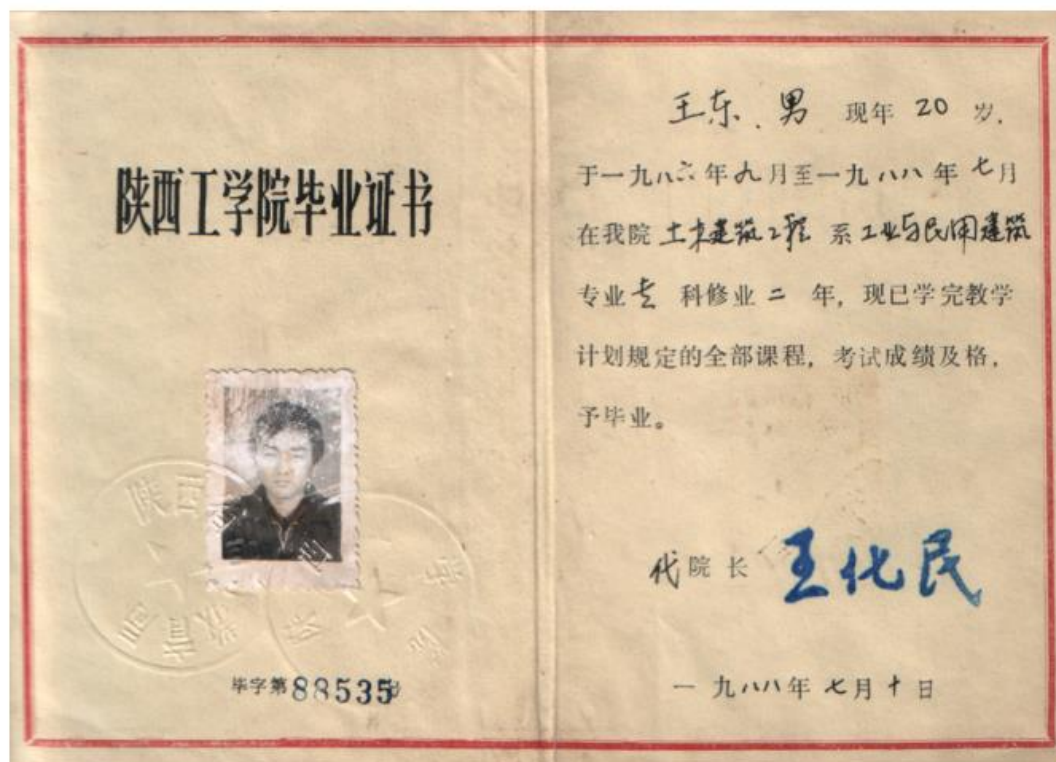 陕西工学院毕业证书
毕字第88535号
王东、男 现年 20 岁，
于一九八六年九月至一九八八年七月
在我院 土木建筑工程 系 工业与民用建筑
专业专 科修业 二 年，现已学完教学
计划规定的全部课程，考试成绩及格，
予毕业。
代院 长 王化民
一九八八年七月十日